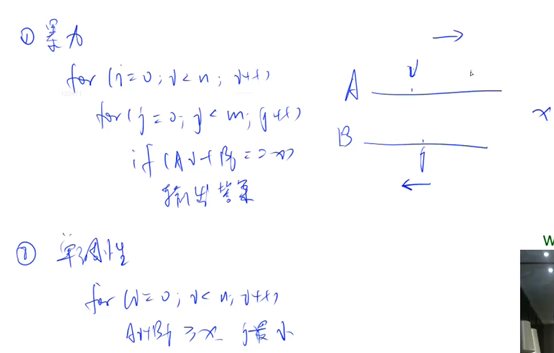 ① 暴力
for (i=0; i<n; i++)
for (j=0; j<m; j++)
if (Ai+Bj==x)
输出答案
A
i
B
j
x
② 单调性
for (i=0; i<n; i++)
Ai+Bj≥x j最小
W